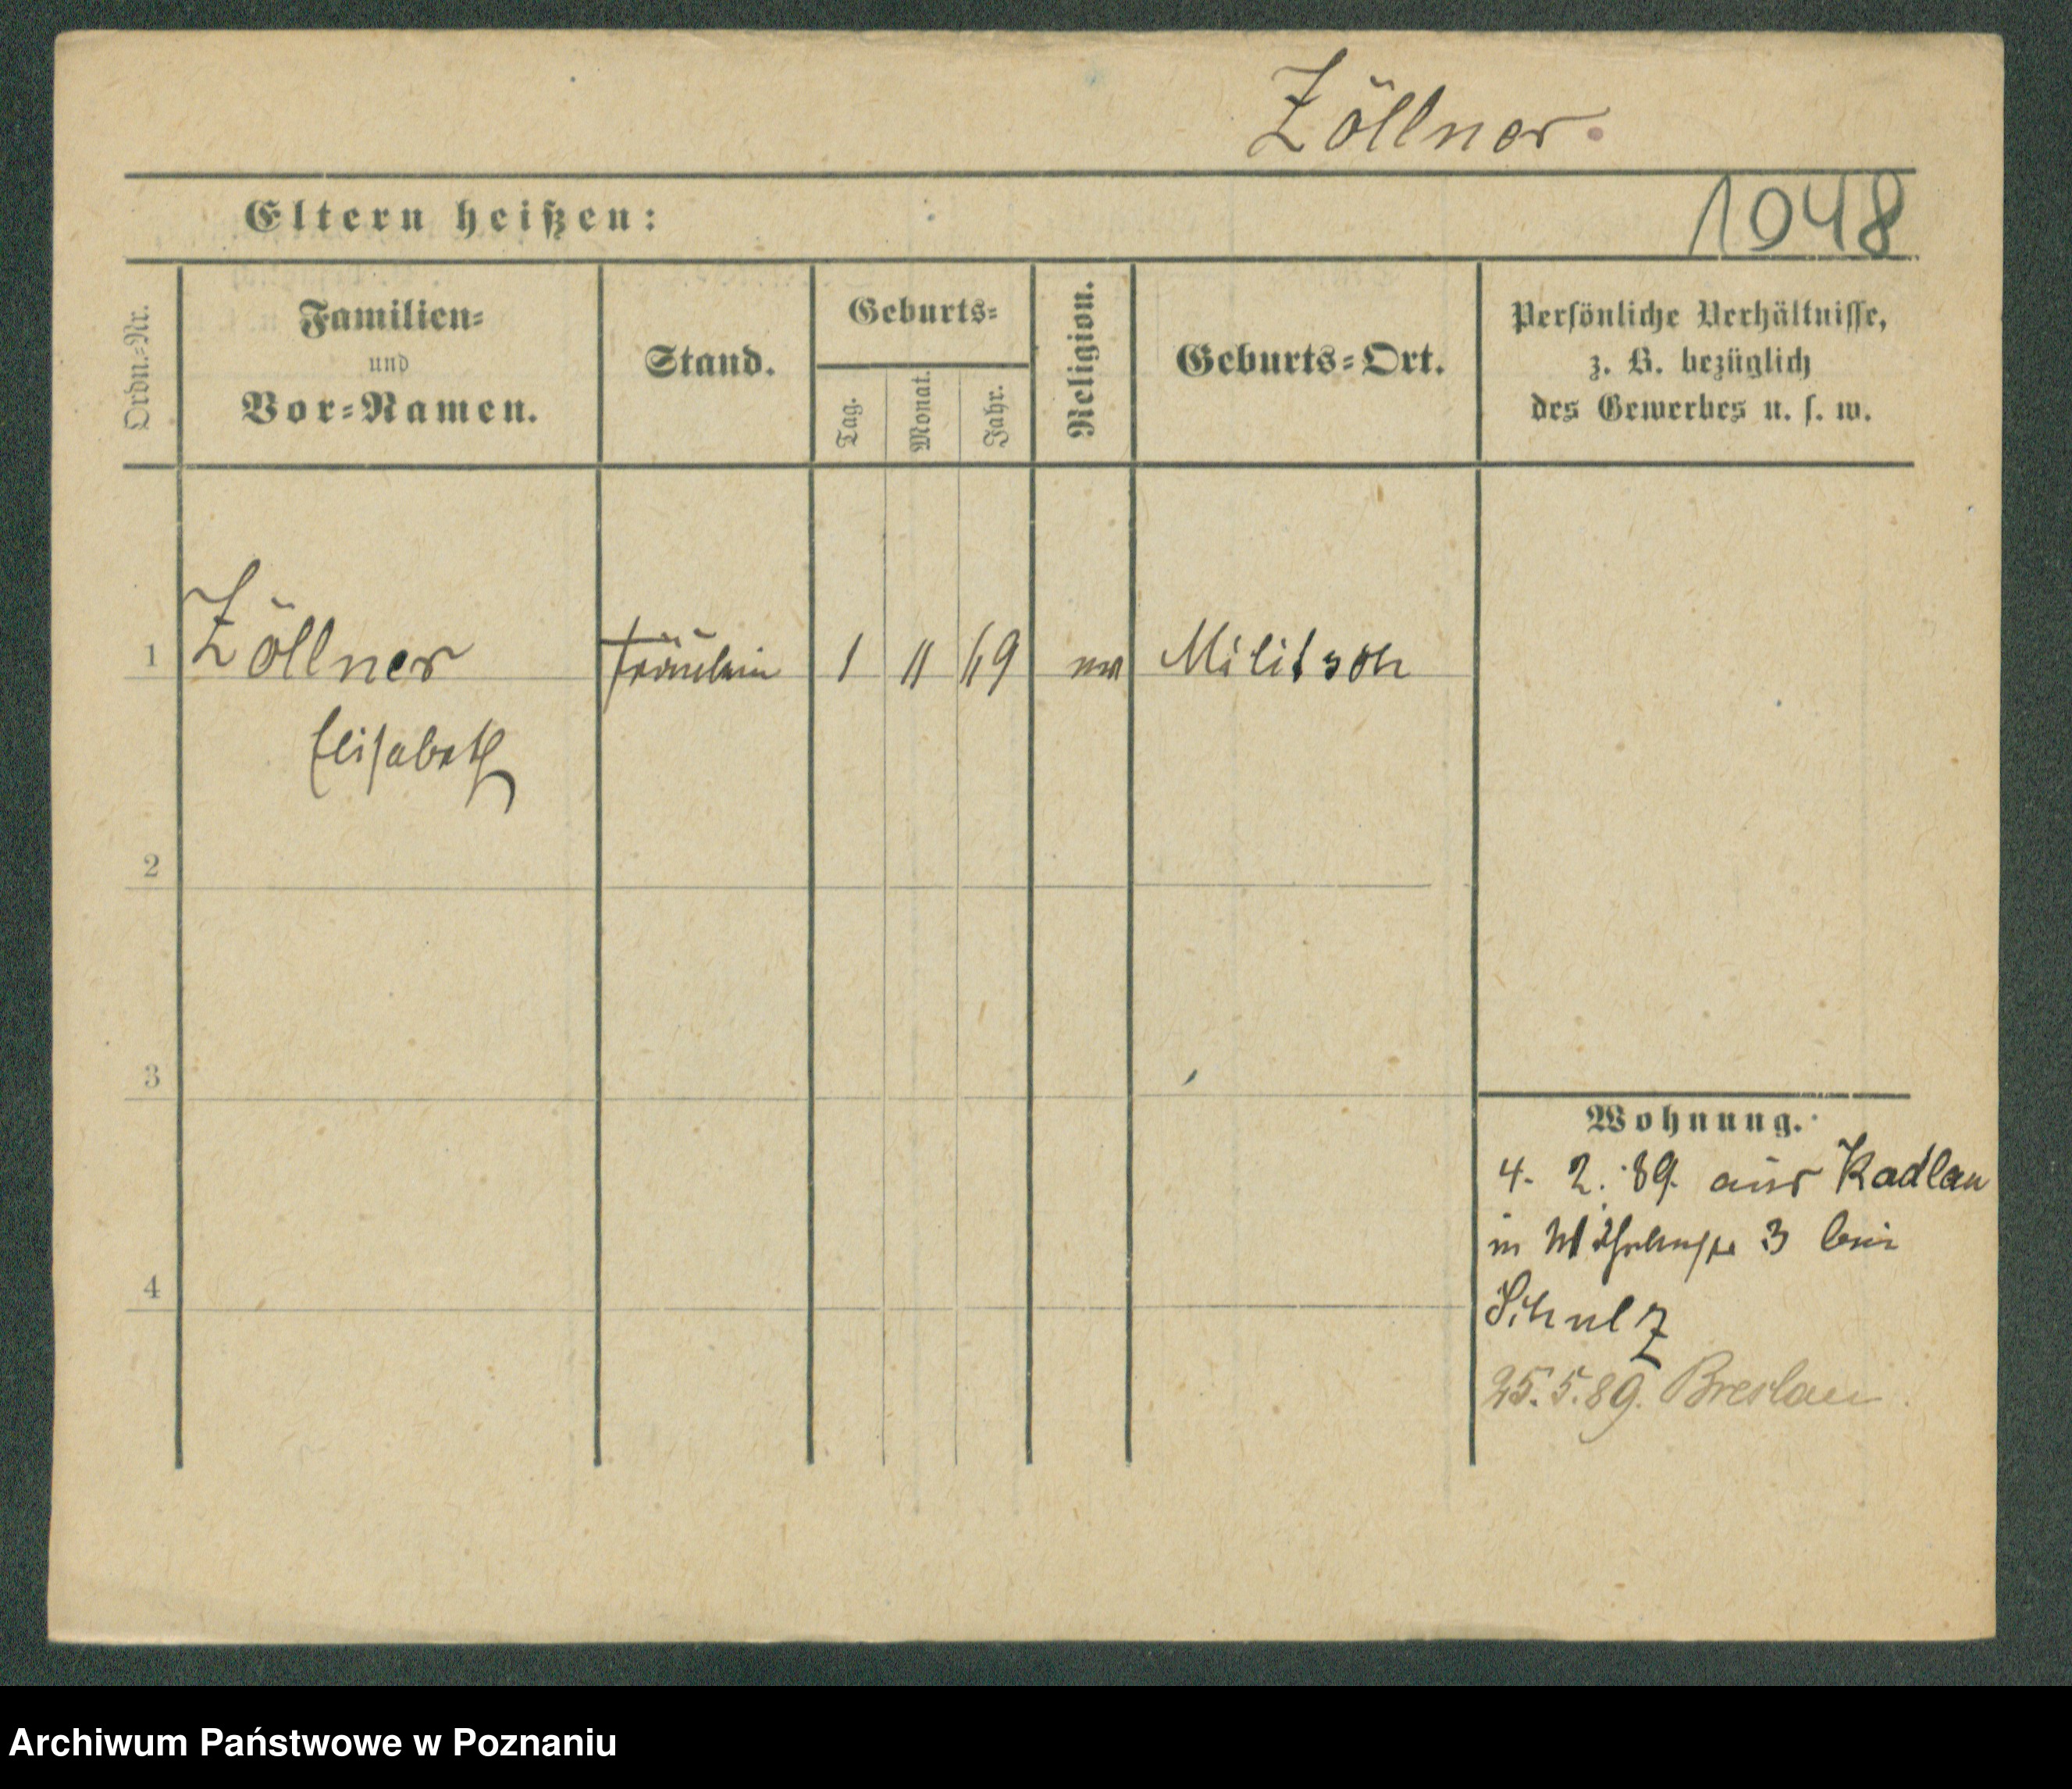 Zöllner.
1048
Eltern heißen:
Ordn.-Nr.
Familien-
und
Vor-Namen.
Stand.
Geburts-
Tag.
Monat.
Jahr.
Religion.
Geburts-Ort.
Persönliche Verhältnisse,
z. B. bezüglich
des Gewerbes u. s. w.
1 Zöllner Fräulein 1 11 69 Militsch
Elisabeth
2
3
4
Wohnung.
4. 2. 89. aus Kadlau
in 3 bei
Schulz
25. 5. 89. Breslau
Archiwum Państwowe w Poznaniu